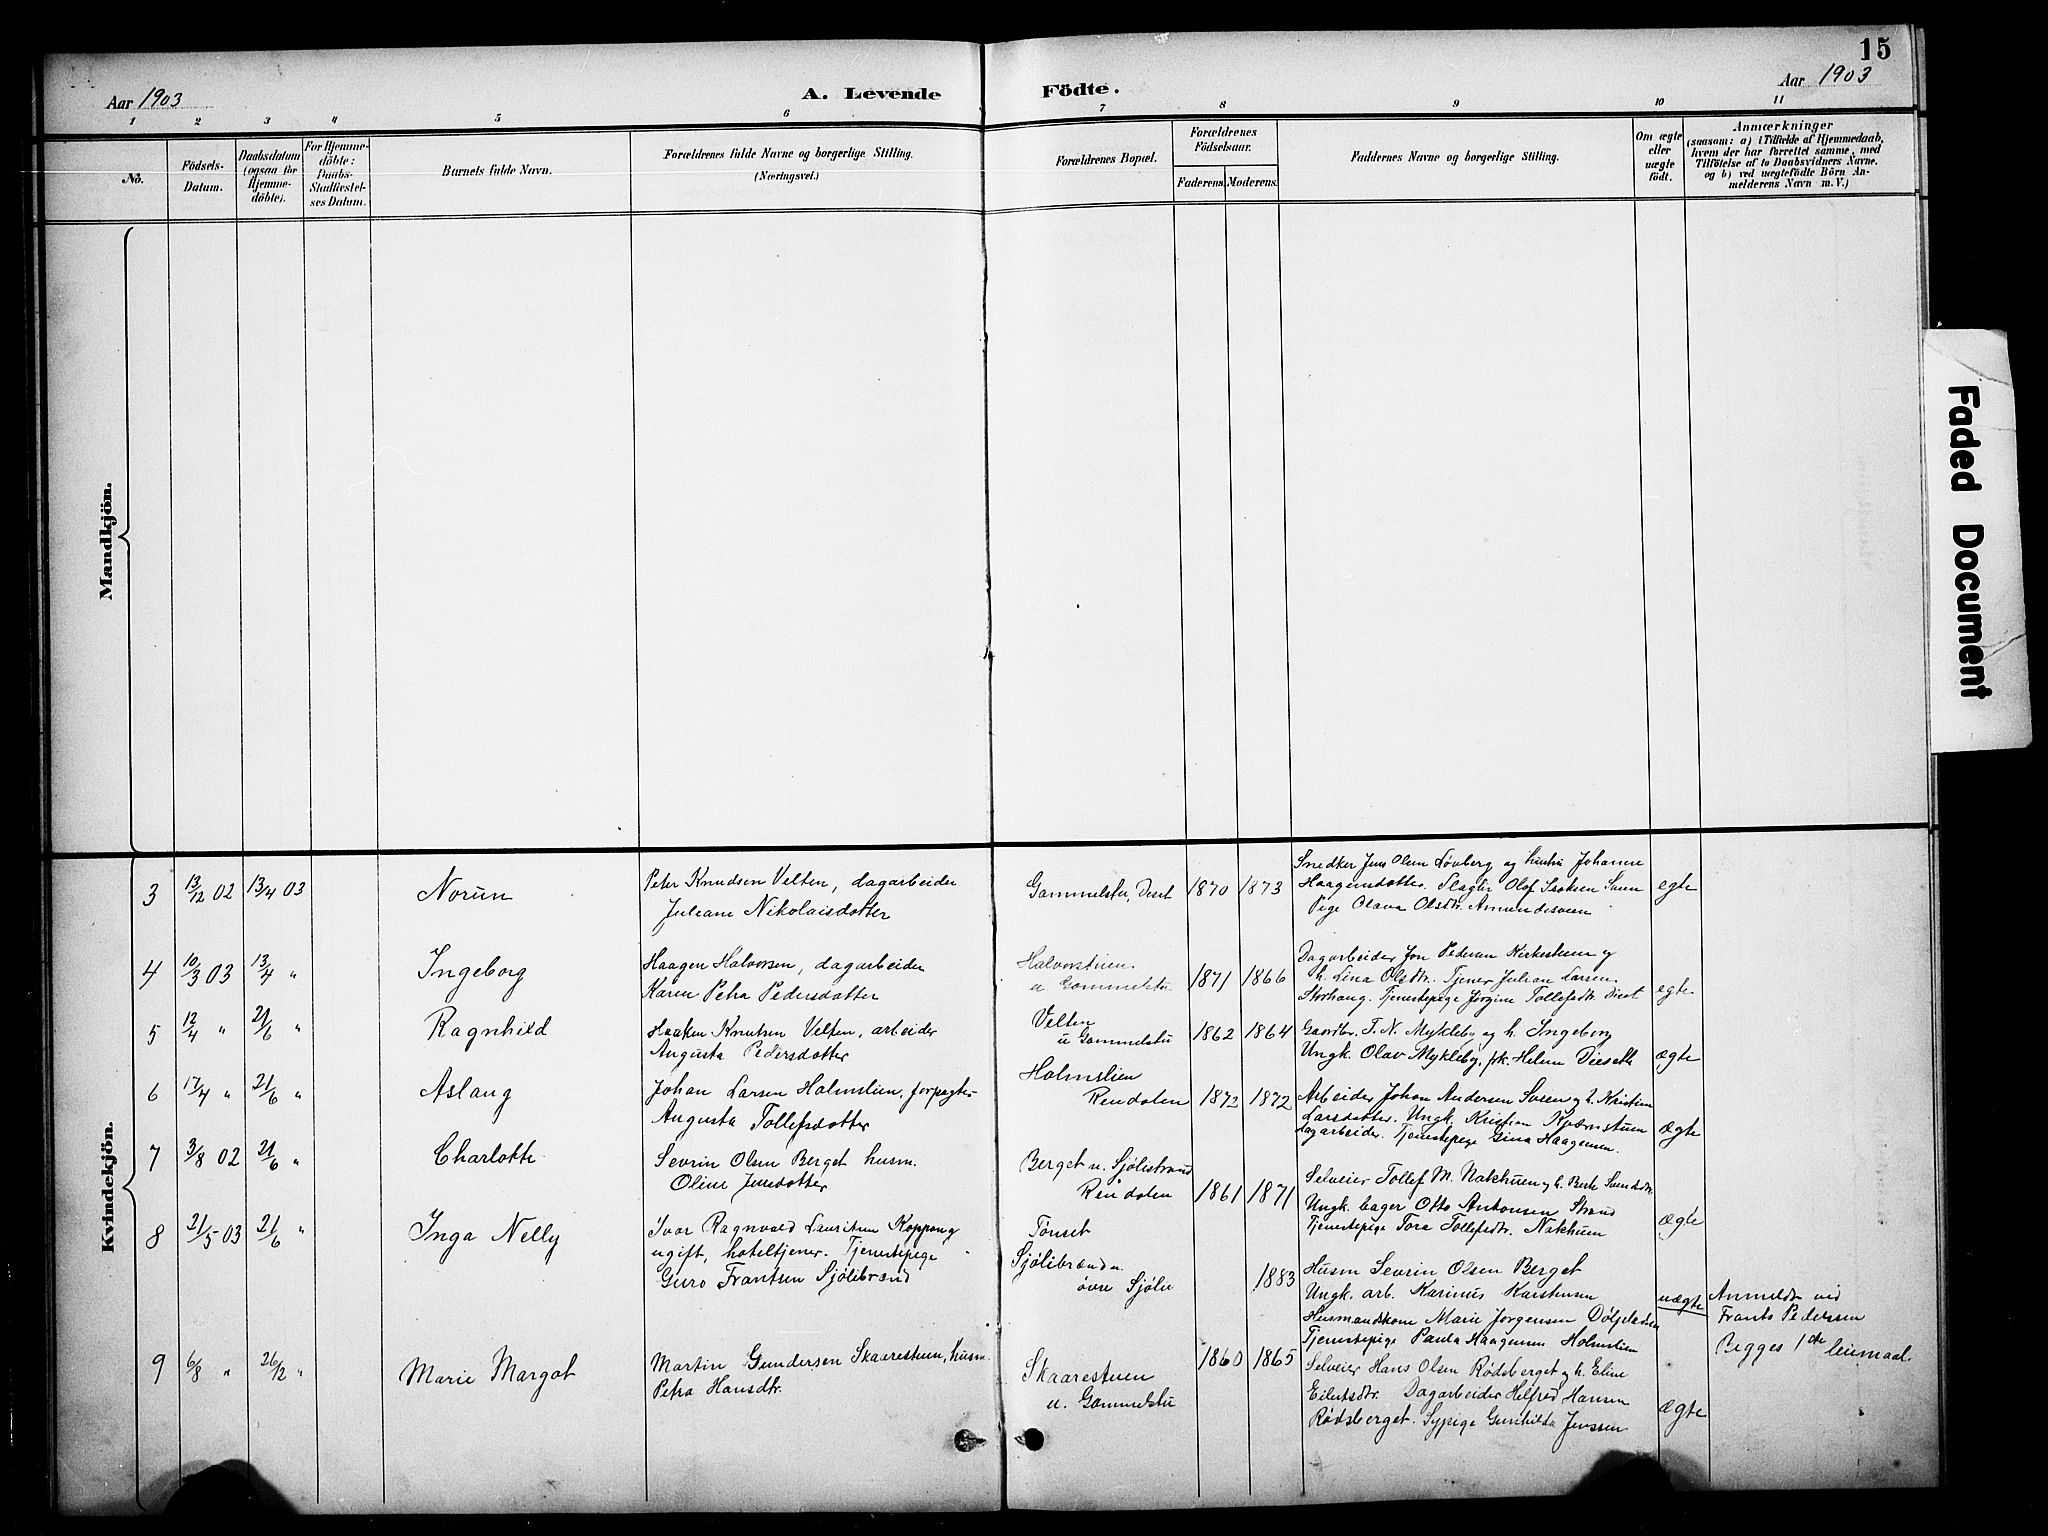 15
Aar 1903
A. Levende Födte.
Aar 1903
1 2 3 4 5 6 7 8 9 10 11
No.
Födsels-
Datum.
Daabsdatum
(ogsaa for
Hjemme-
döbte).
For Hjemme-
döbte:
Daabs-
Stadfæstel-
ses Datum.
Barnets fulde Navn.
Forældrenes fulde Navne og borgerlige Stilling.
(Næringsvei.)
Forældrenes Bopæl.
Forældrenes
Födselsaar.
Faderens. Moderens.
Faddernes Navne og borgerlige Stilling.
Om ægte
eller
uægte
födt.
Anmærkninger
(saasom: a) i Tilfælde af Hjemmedaab,
hvem der har forrettet samme, med
Tilföielse af to Daabsvidners Navne.
og b) ved uægtefödte Börn An-
melderens Navn m. V.)
Mandkjön.
Kvindekjön.
3 13/12 02 13/4 03 Norun
Peter Knudsen Velten, dagarbeider
Juliane Nikolaisdatter
Gammelstu, Deset 1870 1873
Snedker Jens Olsen Løvberg og hustru Johanne
Haagensdatter. Slagter Olof Isaksen
Pige Olava Olsdtr. Amundsveen
egte
4 10/3 03 13/4 " Ingeborg
Haagen Halvorsen, dagarbeider
Karen Petra Pedersdatter
Halvorstuen
u Gammelstu 1871 1866
Dagarbeider Jon Pedersen Kirkestuen og
h. Lina Olsdtr. Tjener Julian Larsen
Storhaug. Tjenestepige Jørgine Tollefsdtr. Diset
egte
5 12/4 " 21/6 " Ragnhild
Haaken Knutsen Velten, arbeider
Augusta Pedersdatter
Velten
u Gammelstu 1862 1864
Gaardbr. T. N. Mykleby og h. Ingeborg
Ungk. Olav Mykleby, pk. Helene Dieseth
ægte
6 17/4 " 21/6 " Aslaug
Johan Larsen Holmslien, forpagter
Augusta Tollefsdatter
Holmslien
Rendalen 1873 1872
Arbeider Johan Andersen Sveen og h. Kristine
Larsdatter. Ungk. Kristian Kjærnstuen
dagarbeider. Tjenestepige Gina Haagensen.
ægte
7 3/8 02 21/6 " Charlotte
Sevrin Olsen Berget husm.
Oline Jensdatter
Berget u. Sjølistrand
Rendalen 1861 1871
Selveier Tollef M. Nakhuen og h. Berte
Ungk. bager Otto Antonsen Strand
Tjenestepige Tora Tollefsdtr. Nakhuen
ægte
8 21/5 03 21/6 " Inga Nelly
Ivar Ragnvald Lauritsen Koppang
ugift, hoteltjener. Tjenestepige
Guro Frantsen Sjölibrænd
Tönset
Sjölibrænd u.
övre Sjöli 1883
Husm Sevrin Olsen Berget
Ungk. arb. Karinus Karstensen
Husmandskone Marie Jørgensen Döljeladsen
Tjenestepige Paula Haagensen Holmslien
uægte
Anmeldt ved
Frants Pedersen
Begges 1ste leiemaal.
9 6/8 " 26/12 " Marie Margot
Martin Gundersen Skaarestuen, husm.
Petra Hansdtr.
Skaarestuen
u. Gammelstu 1860 1865
Selveier Hans Olsen Rødsberget og h. Eline
Eilertsdtr. Dagarbeider Helfred Hansen
Rødsberget. Sypige Gunhilda Jenssen
ægte
Faded Document